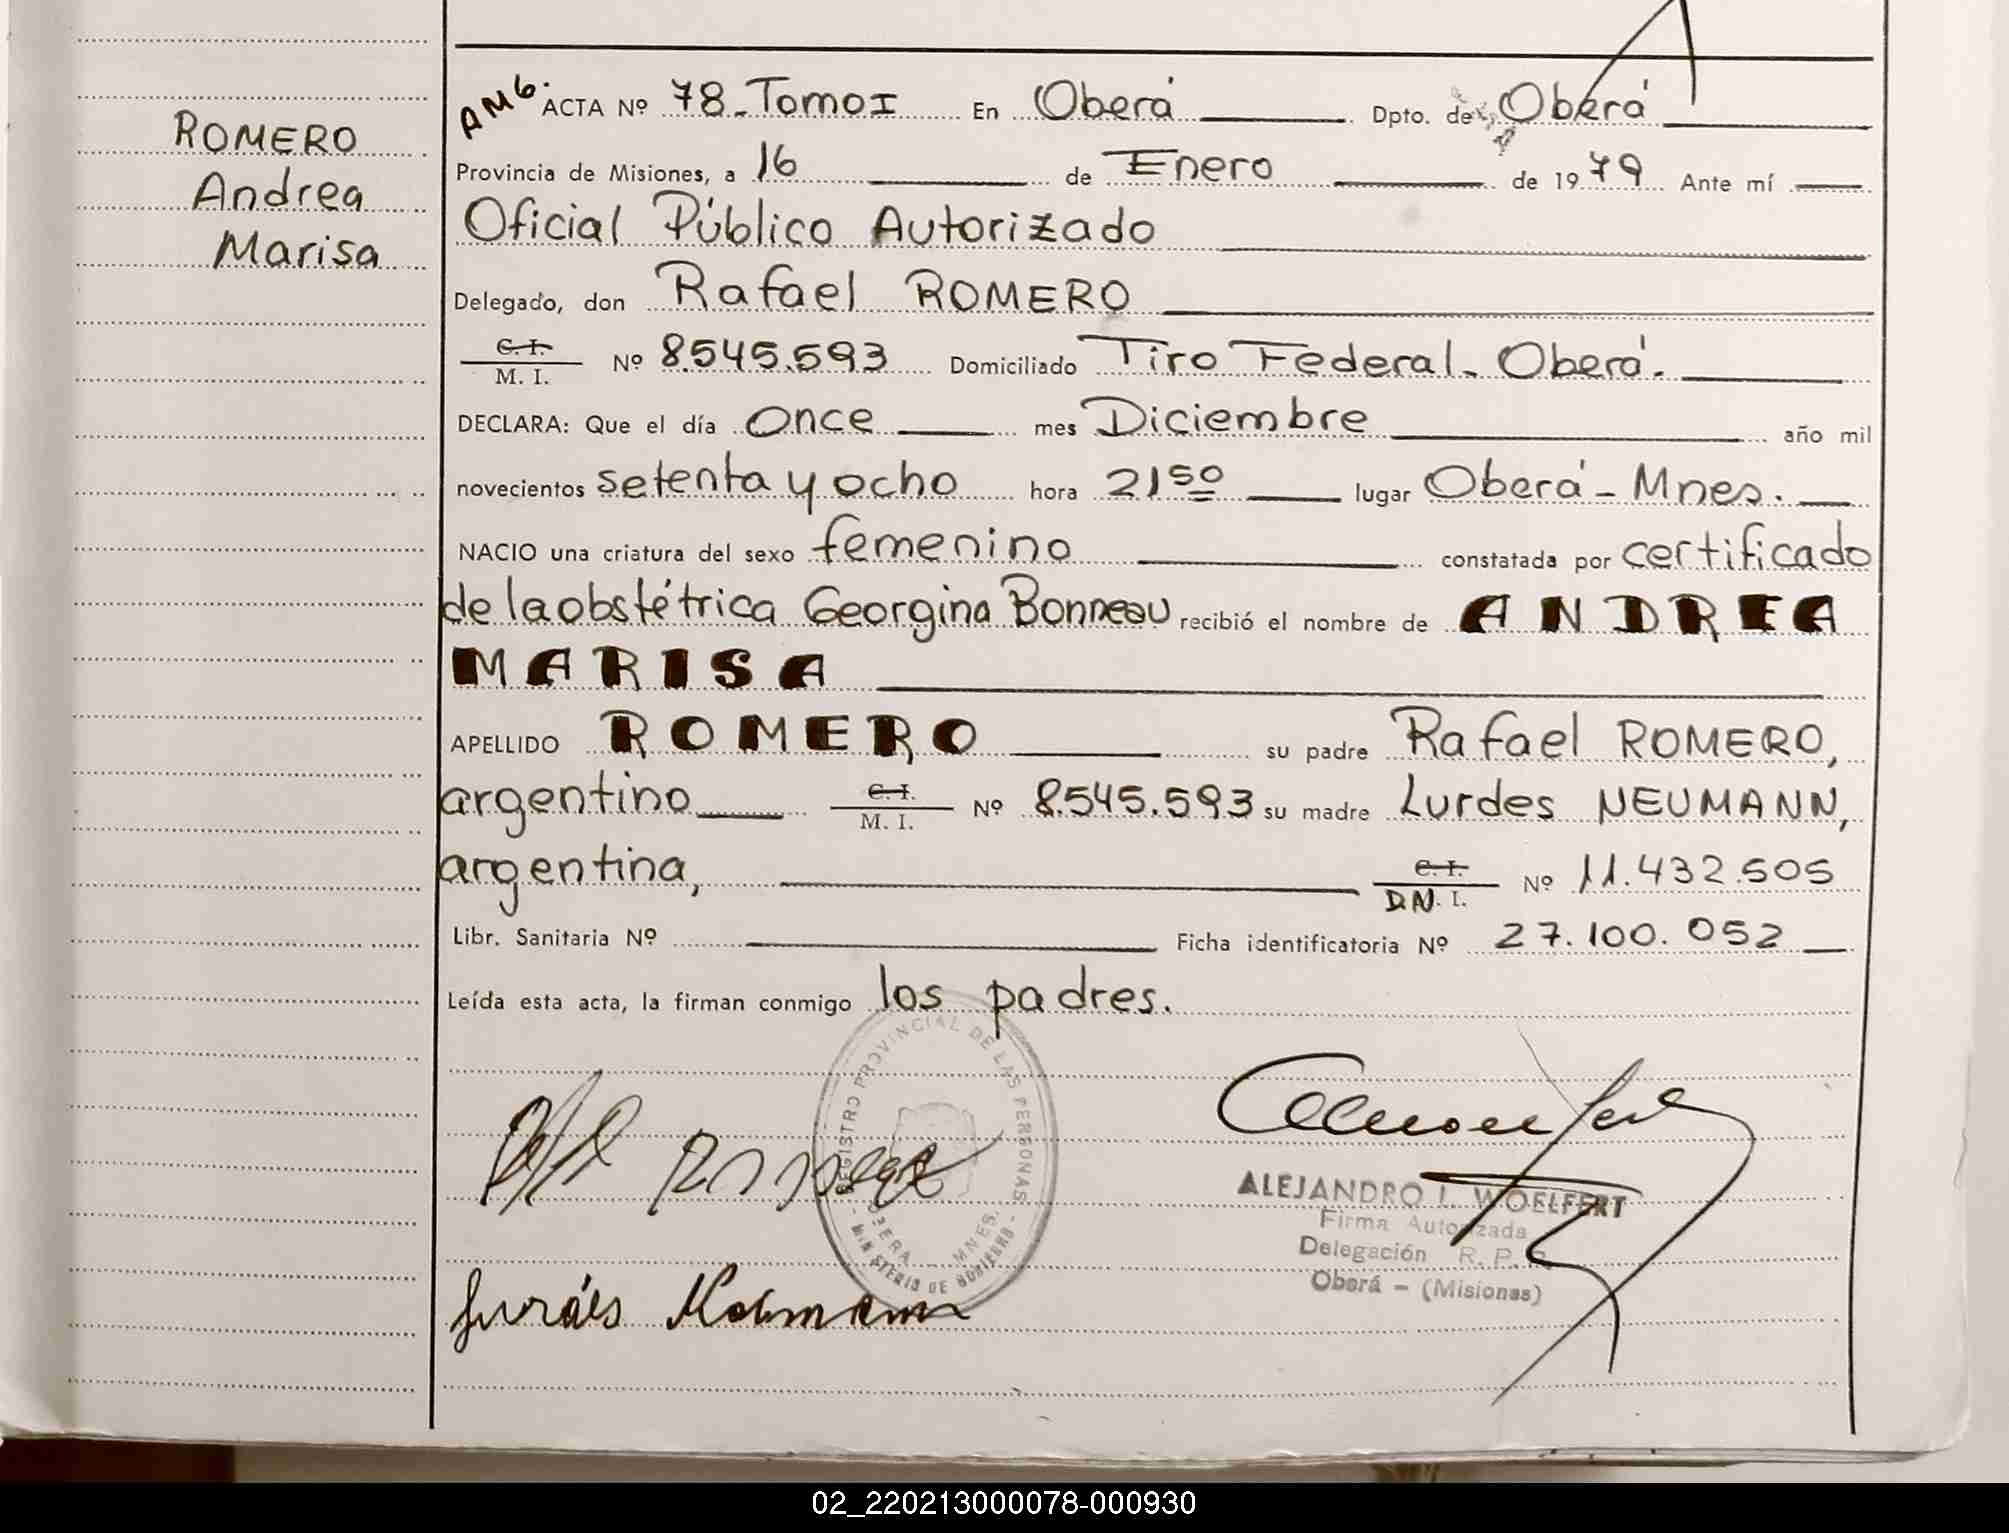 ROMERO
Andrea
Marisa
AMG. ACTA Nº 78-Tomo I En Oberá Dpto. de Oberá
Provincia de Misiones, a 16 de Enero de 1979 Ante mí
Oficial Público Autorizado
Delegado, don Rafael ROMERO
C. I.
M. I. Nº 8.545.593 Domiciliado Tiro Federal - Oberá.
DECLARA: Que el día Once mes Diciembre año mil
novecientos setenta y ocho hora 21 50 lugar Oberá - Mnes.
NACIO una criatura del sexo femenino constatada por certificado
de la obstétrica Georgina Bonneau recibió el nombre de ANDREA
MARISA
APELLIDO ROMERO su padre Rafael ROMERO,
argentino C. I.
M. I. Nº 8.545.593 su madre Lurdes NEUMANN,
argentina, C. I.
D.N. I. Nº 11.432.505
Libr. Sanitaria Nº Ficha identificatoria Nº 27.100.052
Leída esta acta, la firman conmigo los padres.
REGISTRO PROVINCIAL DE LAS PERSONAS
OBERA - MNES.
- MINISTERIO DE GOBIERNO -
ALEJANDRO L. WOELFERT
Firma Autorizada
Delegación R. P. P.
Oberá - (Misiones)
02_220213000078-000930